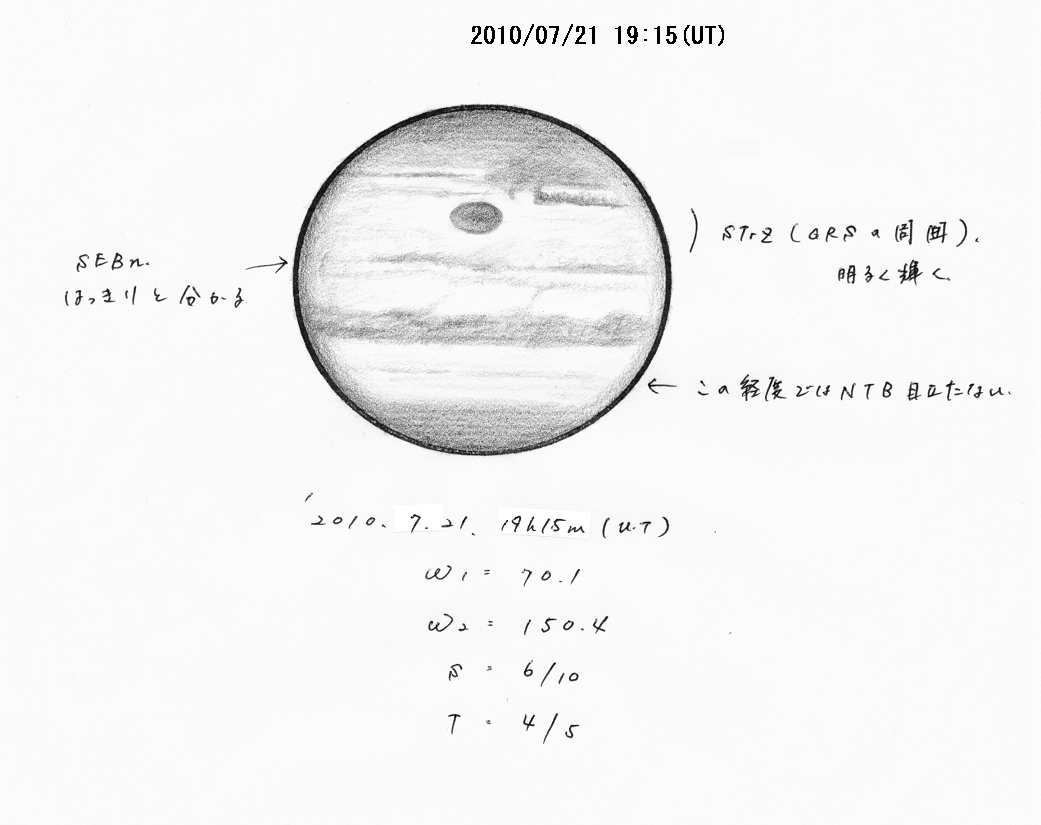 2010/07/21 19:15(UT)
STrZ (GRSの周囲).
明るく輝く.
SEBn.
はっきりと分かる
この経度ではNTB目立たない.
'2010. 7. 21. 19h15m (U.T)
ω1 = 70.1
ω2 = 150.4
S = 6/10
T = 4/5